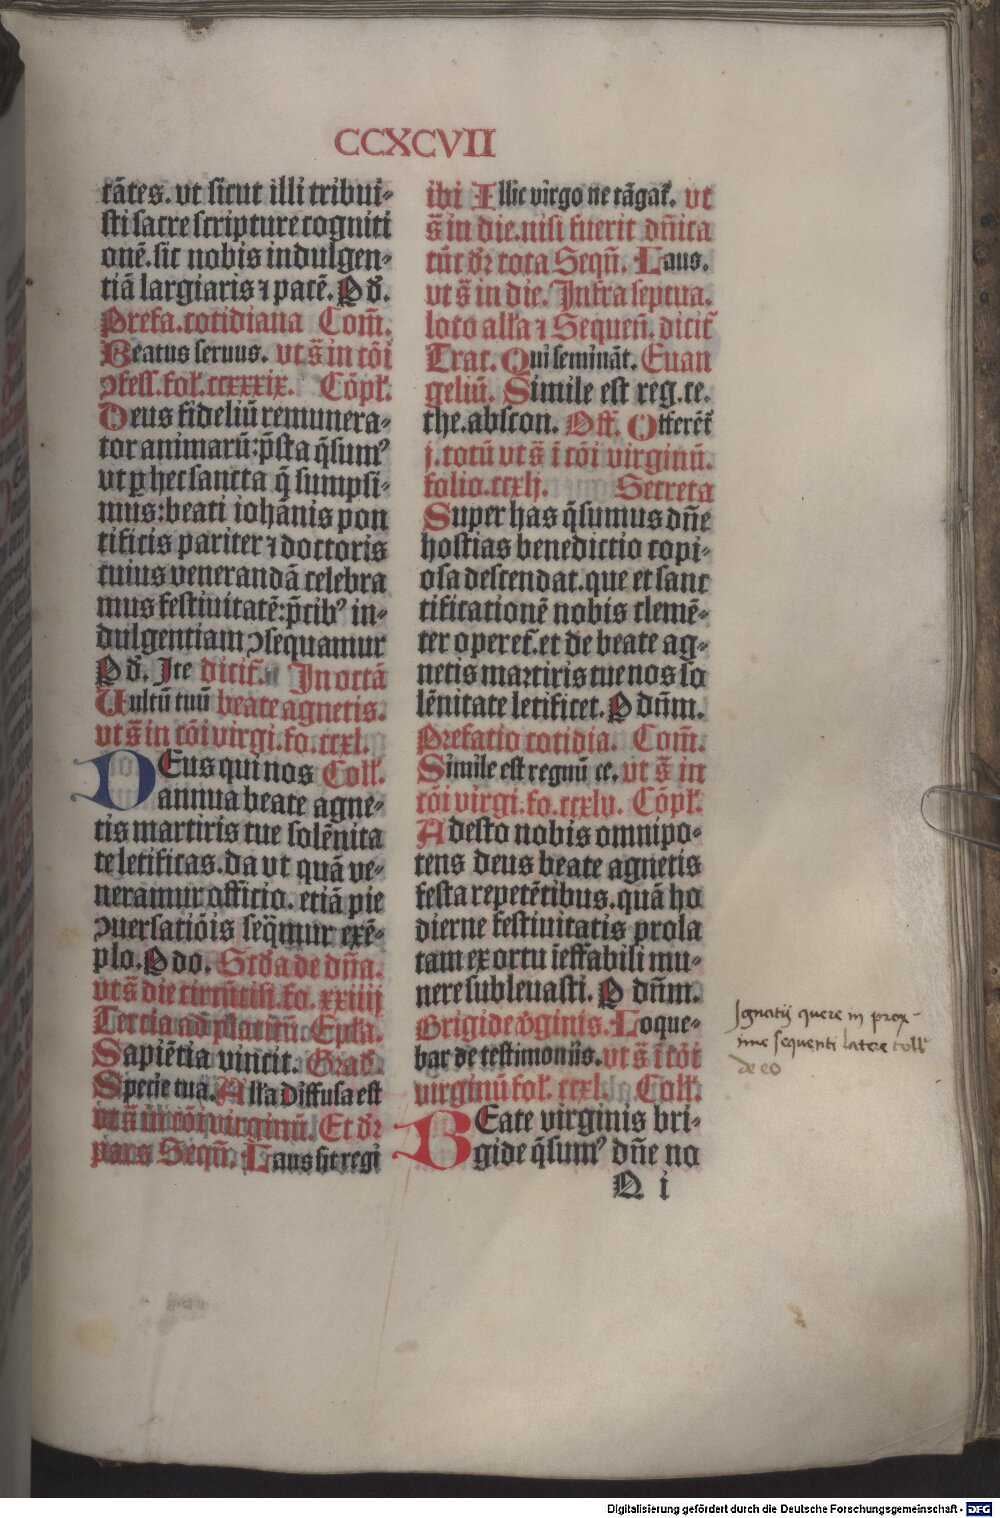 CCXCVII
tātes. vt sicut illi tribui-
sti sacre scripture cogniti
onē. sit nobis indulgen-
tiā largiaris ⁊ pacē. P d̄.
Prefa. cotidiana Com̄.
Beatus seruus. vt s̄ in cōi
ↄfess. fol̄. ccxxxix. Cōpl̄.
Deus fideliū remunera-
tor animarū: p̄sta q̄sumꝰ
vt ꝑ hec sancta q̄ sumpsi-
mus: beati iohānis pon
tificis pariter ⁊ doctoris
cuius venerandā celebra
mus festiuitatē: p̄cibꝰ in-
dulgentiam ↄsequamur
P d̄. Ite dicit̄. In octā
Vultū tuū beate agnetis.
vt s̄ in cōi virgi. fo. ccxl.
DEus qui nos Coll̄.
annua beate agne-
tis martiris tue solēnita
te letificas. da vt quā ve-
neramur officio. etiā pie
ↄuersatiōis seq̄mur exē-
plo. P do. Scda de dn̄a.
vt s̄ die circūcisi. fo. xxiiij
Tercia ad placitū. Epl̄a.
Sapiētia vincit. Grad̄.
Specie tua. All̄a Diffusa est
vt s̄ in cōi virginū. Et dr̄
pars Seqn̄. Laus sit regi
ibi Illic virgo ne tāgat̄. vt
s̄ in die. nisi fuerit dn̄ica
tūc dr̄ tota Seqn̄. Laus.
vt s̄ in die. Infra septua.
loco all̄a ⁊ Sequen̄. dicit̄
Trac. Qui semināt. Euan
geliū. Simile est reg. ce.
the. abscon. Off̄. Offerēt̄
j. totū vt s̄ ī cōi virginū.
folio. ccxlj. Secreta
Super has q̄sumus dn̄e
hostias benedictio copi-
osa descendat. que et sanc
tificationē nobis clemē-
ter operet̄. et de beate ag-
netis martiris tue nos so
lēnitate letificet. P dn̄m.
Prefatio cotidia. Com̄.
Simile est regnū ce. vt s̄ in
cōi virgi. fo. ccxlv. Cōpl̄.
Adesto nobis omnipo-
tens deus beate agnetis
festa repetētibus. quā ho
dierne festiuitatis prola
tam ex ortu īeffabili mu-
nere subleuasti. P dn̄m.
Brigide v̄ginis. Loque-
bar de testimoniis. vt s̄ ī cōi
virginū fol̄. ccxl. Coll̄.
BEate virginis bri-
gide q̄sumꝰ dn̄e no
Q i
Ignatij quere in prox-
ime sequenti latere coll̄
de eo
Digitalisierung gefördert durch die Deutsche Forschungsgemeinschaft - DFG